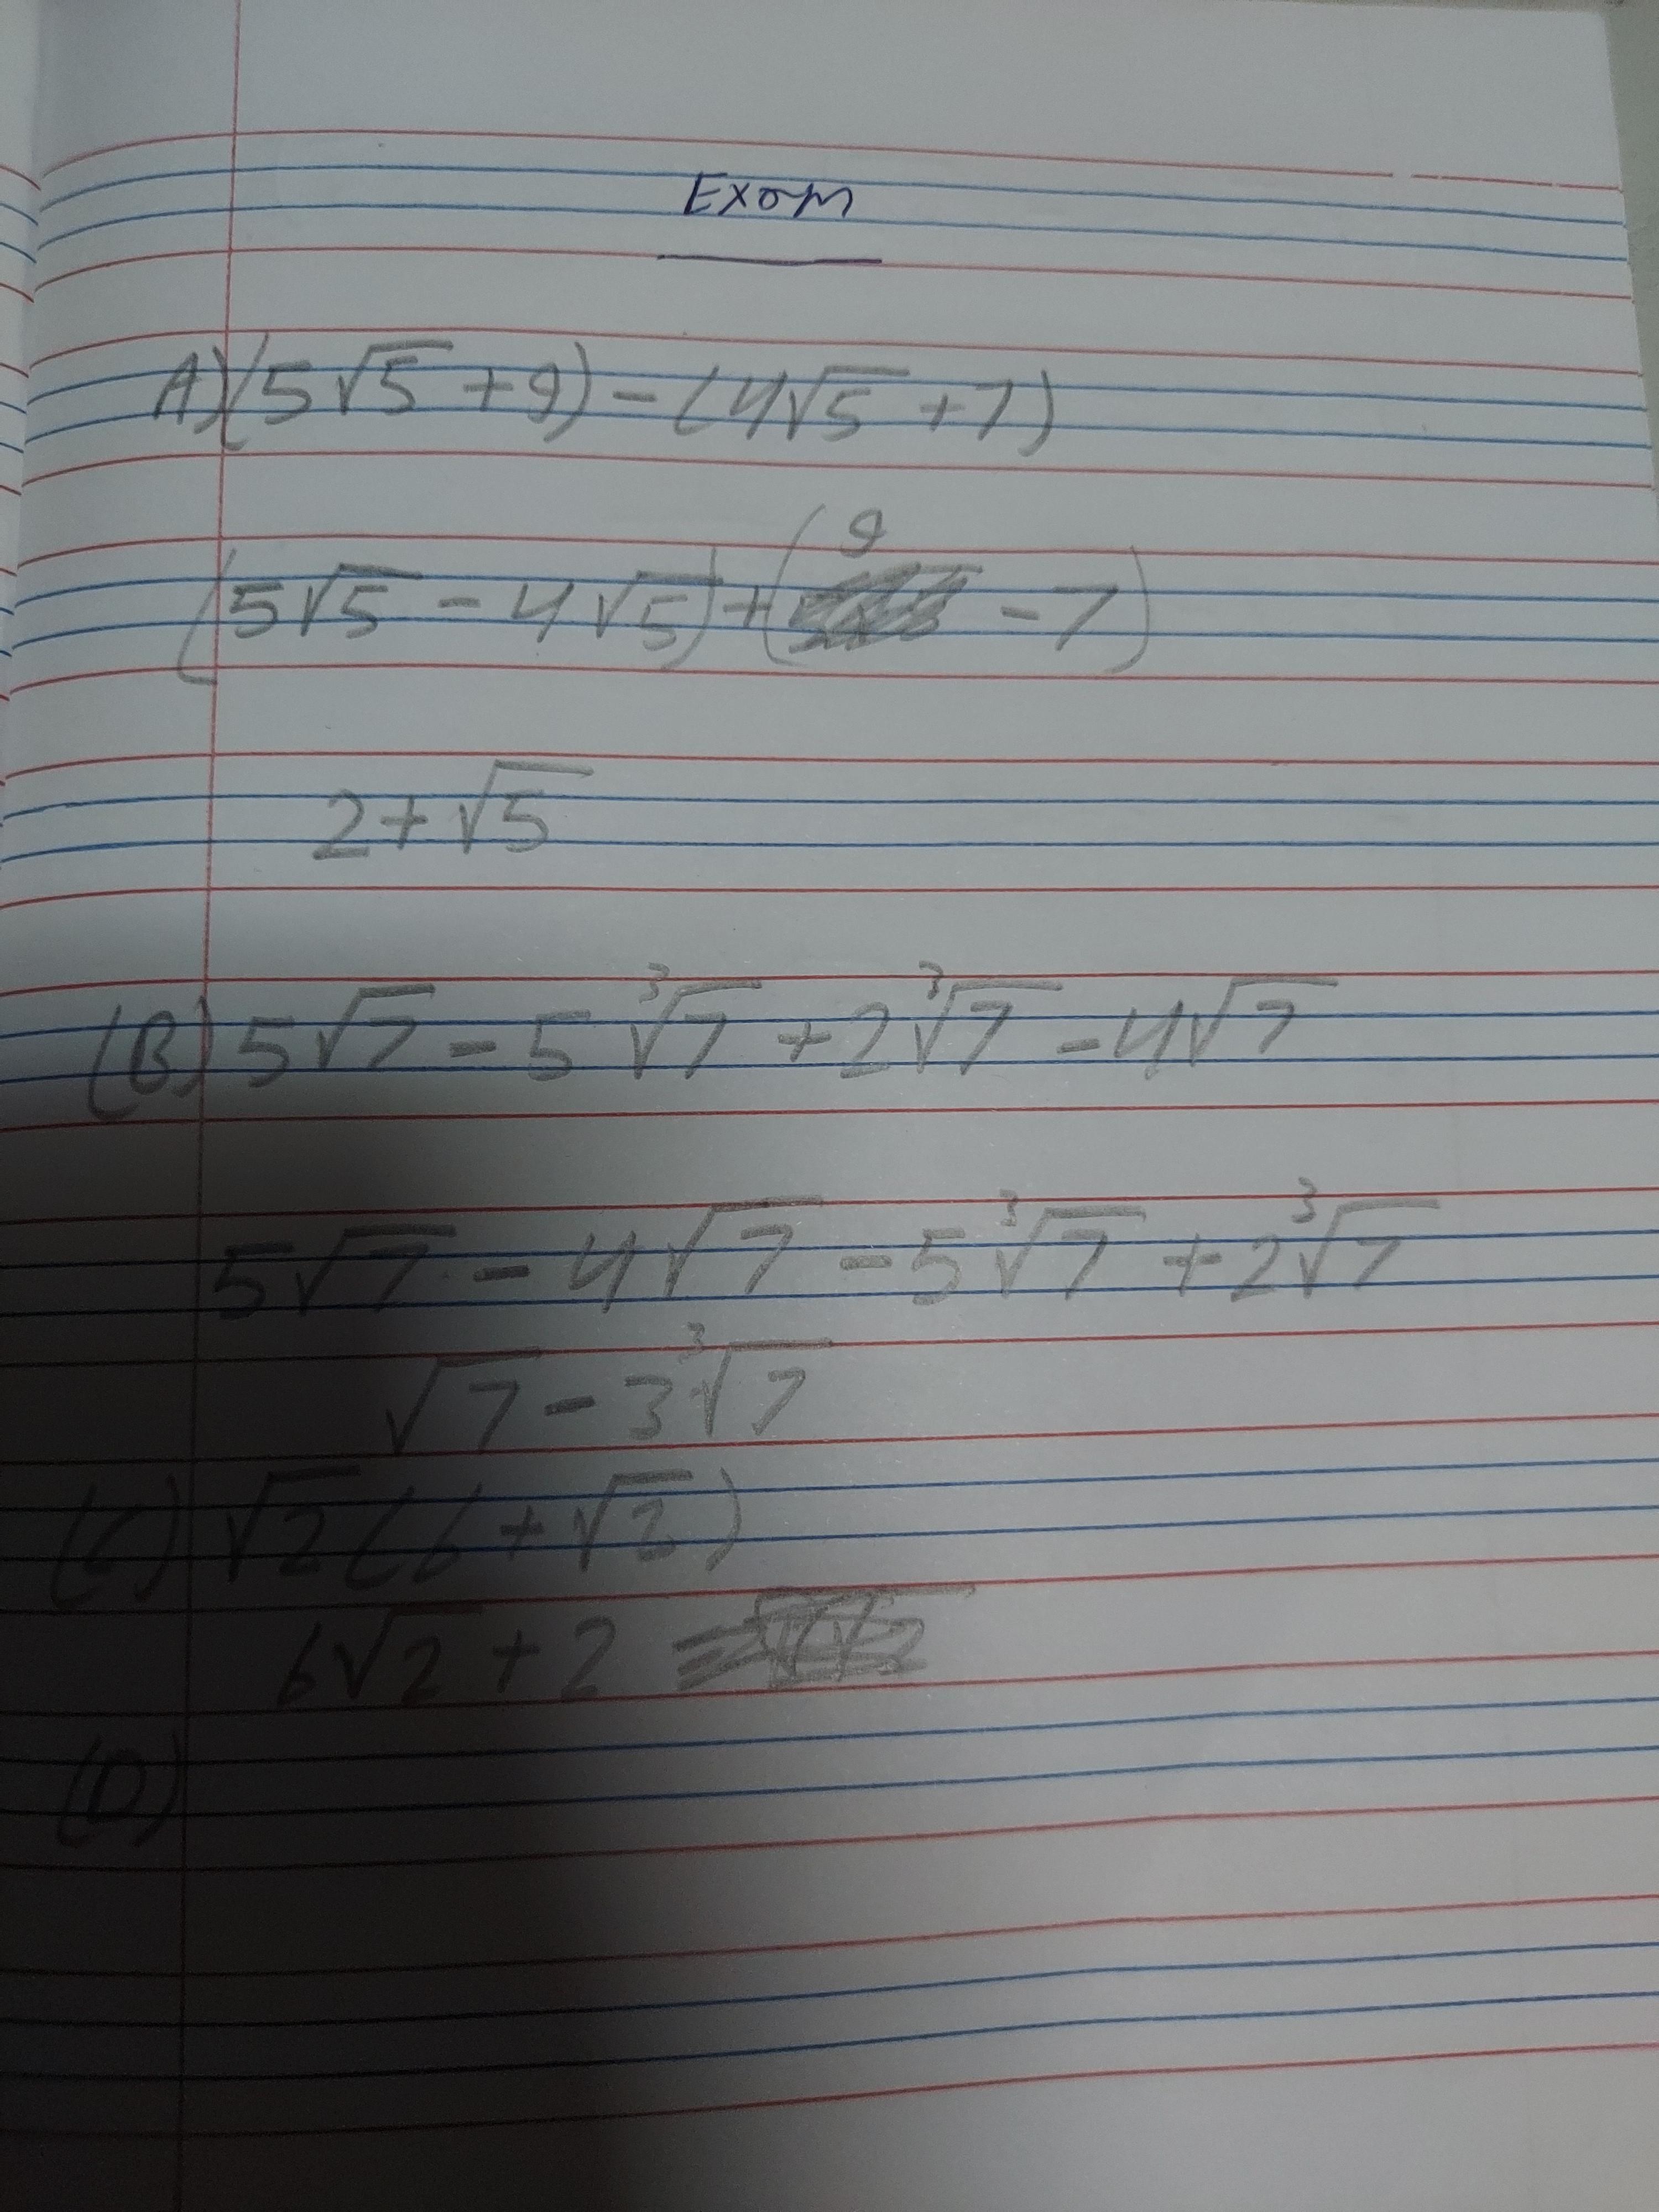 Exam
A) (5√5 + 9) - (4√5 + 7)
(5√5 - 4√5) + (9 - 7)
2 + √5
(B) 5√7 - 5∛7 + 2∛7 - 4√7
5√7 - 4√7 - 5∛7 + 2∛7
√7 - 3∛7
(C) √2 (6 + √2)
6√2 + 2
(D)